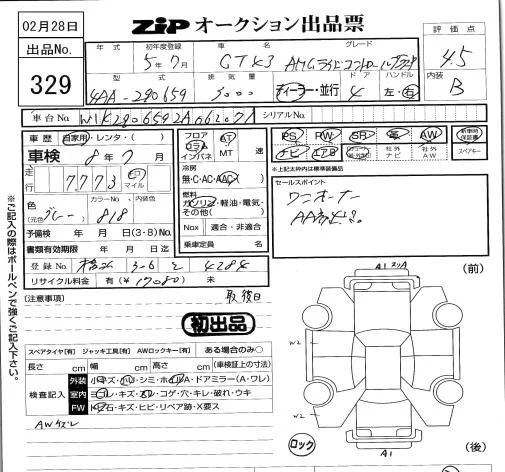 02月28日
ZIP オークション出品票
出品No.
329
評価点
4.5
内装
B
年式 初年度登録 車名 グレード
5年7月 GT43
型式 排気量 ドア ハンドル
4AA-290659 3000 ディーラー・並行 4 左・右
車台No. シリアルNo.
車歴 自家用・レンタ・( )
車検 8年7月
走行 7773 km マイル
色 (元色) グレー カラーNo. 818 内装色
予備検 年 月 日(3・8)No.
書類有効期限 年 月 日迄
登録No. 3-6 4284
リサイクル料金 有(¥17080) 未
フロア コラム インパネ
AT
MT 速
冷房
無・C・AC・AAC
燃料
ガソリン・軽油・電気・その他( )
Nox 適合・非適合
乗車定員 名
PS PW SR 革 AW 新車時保証書
ナビ エアB 社外ナビ 社外AW スペアキー
※上記太枠内は標準装備品
セールスポイント
ワンオーナー
(注意事項) 取 後日
初出品
スペアタイヤ[有] ジャッキ工具[有] AWロックキー[有] ある場合のみ○
長さ cm 幅 cm 高さ cm (車検証上の寸法)
検査記入
外装 小キズ・凹・シミ・ホイルA・ドアミラー(A・ワレ)
室内 ヨゴレ・キズ・スレ・コゲ・穴・キレ・破れ・ウキ
FW 飛石・キズ・ヒビ・リペア跡・X要ス
AWキズ
※ご記入の際はボールペンで強くご記入下さい。
A1 スリA
(前)
W2
W2
ロック
A1
(後)